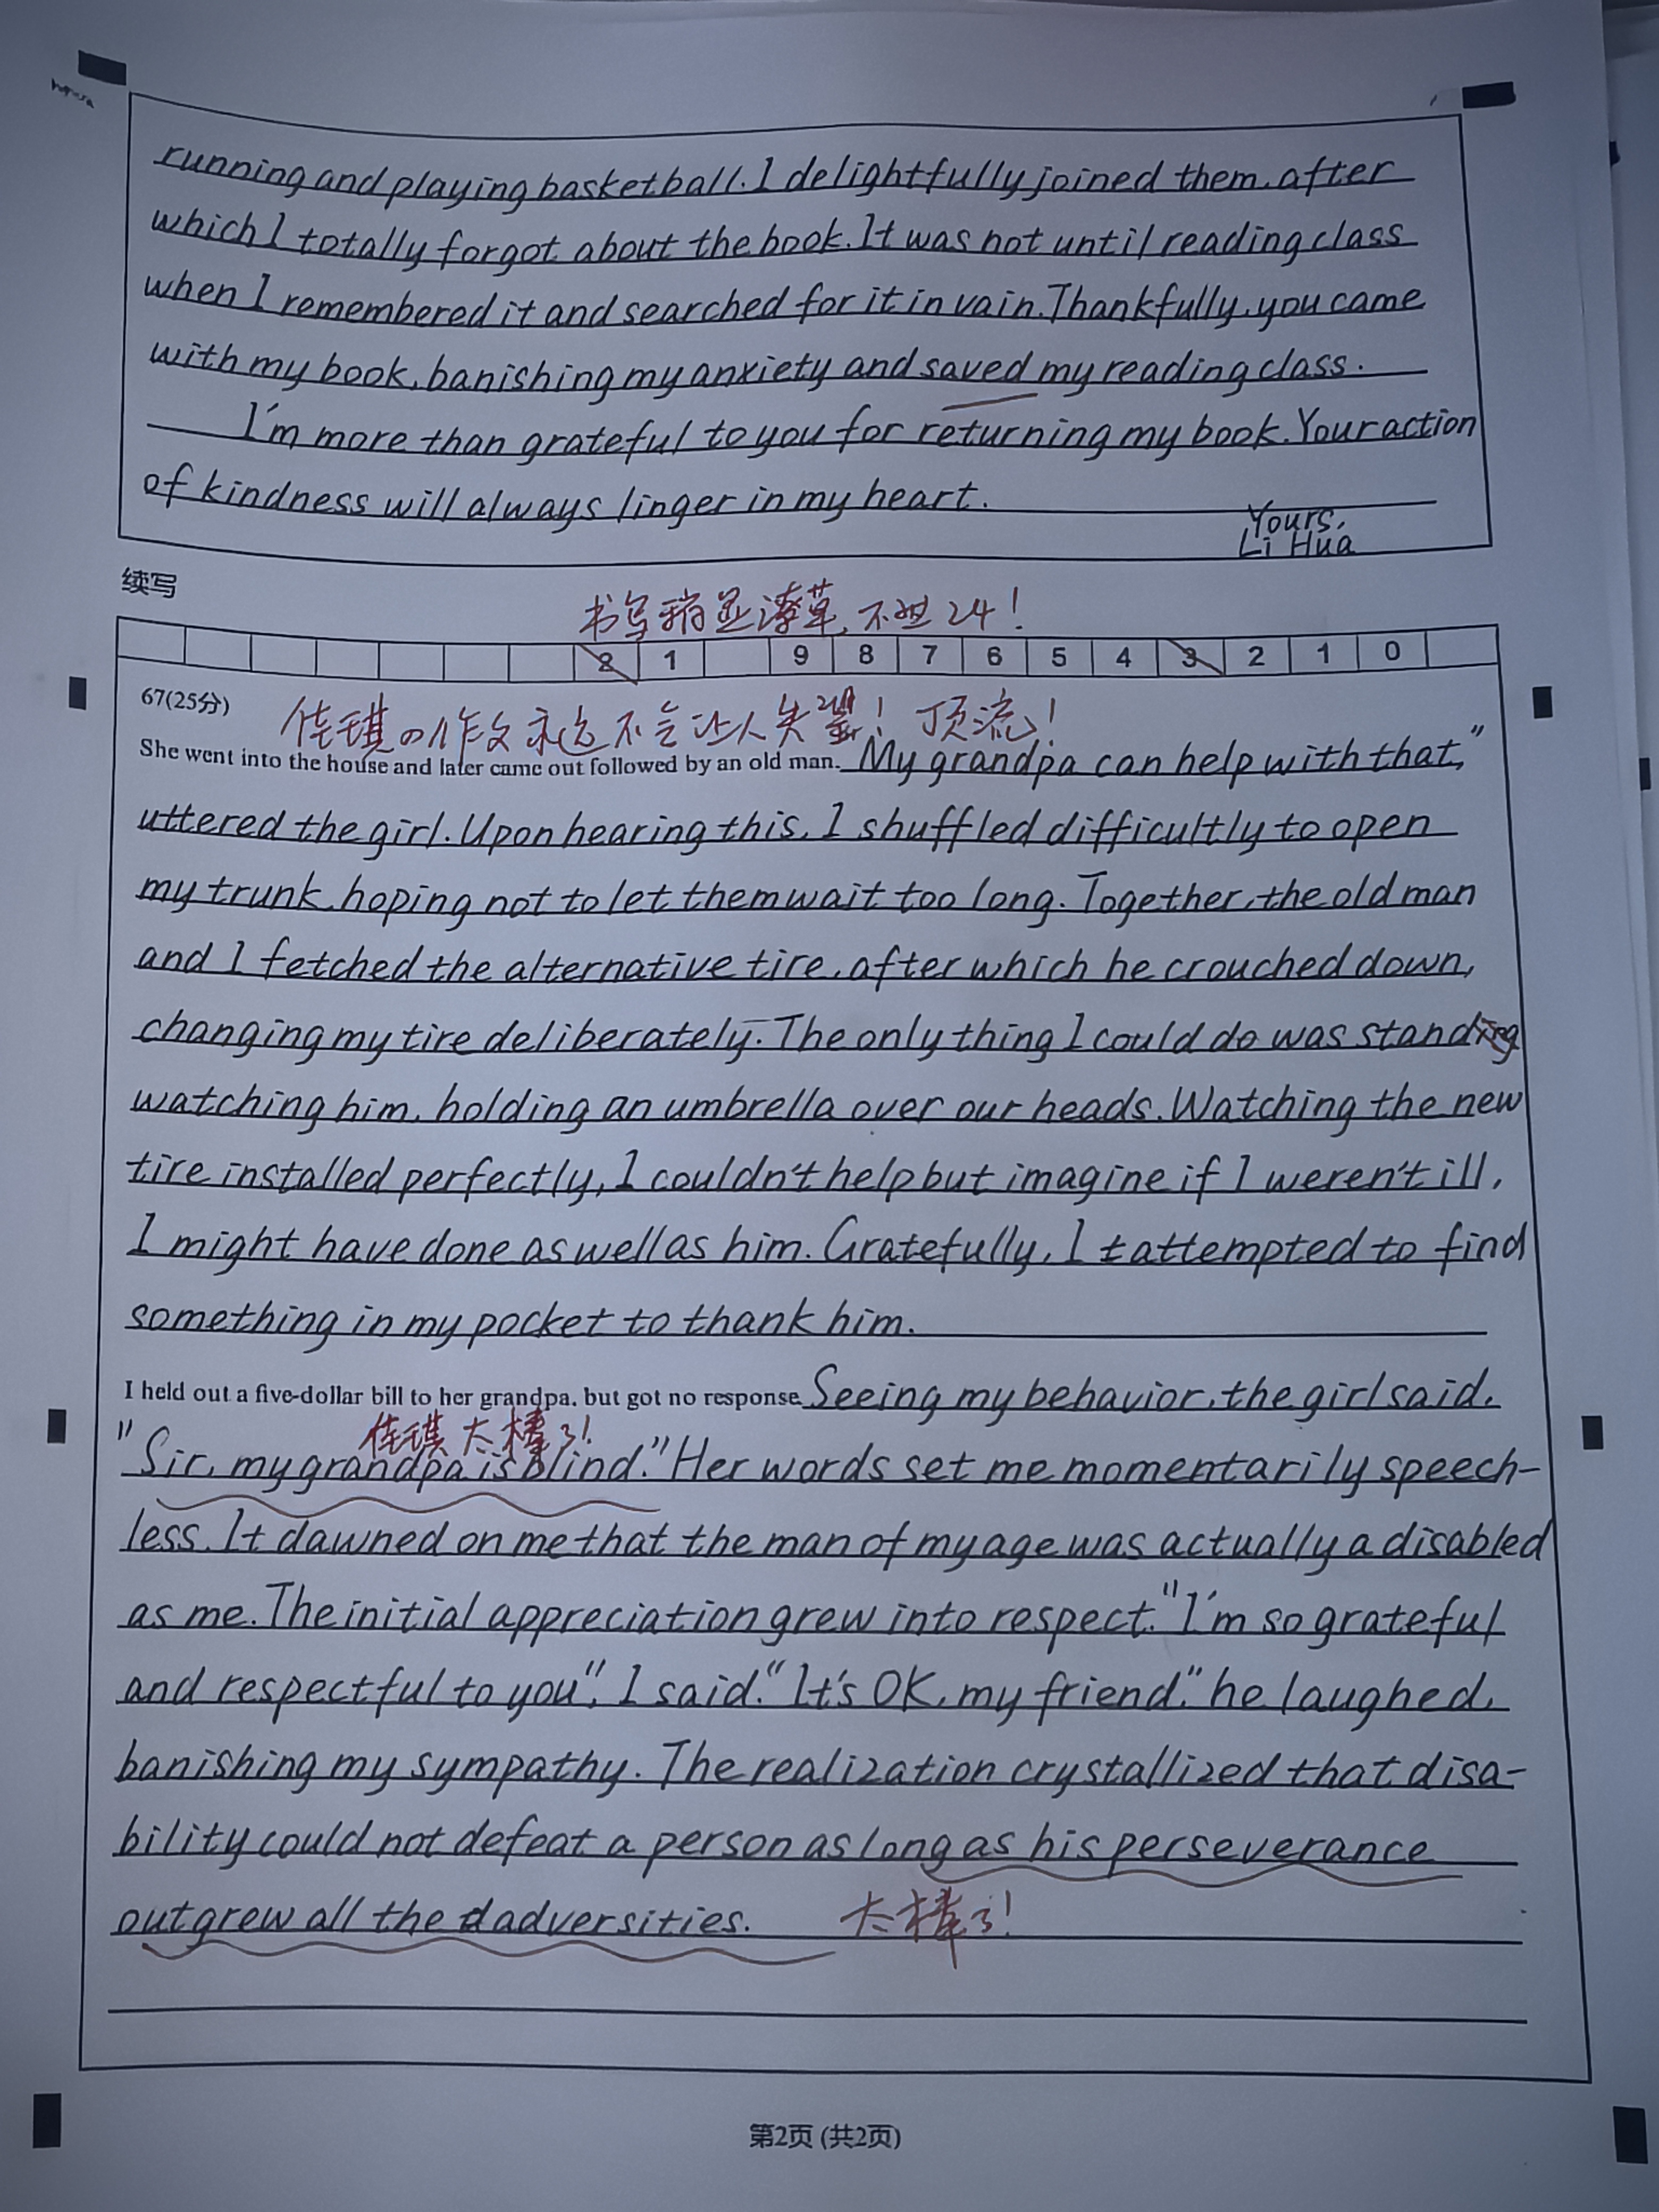 running and playing basketball. I delightfully joined them, after
which I totally forgot about the book. It was not until reading class
when I remembered it and searched for it in vain. Thankfully, you came
with my book, banishing my anxiety and saved my reading class.
I'm more than grateful to you for returning my book. Your action
of kindness will always linger in my heart.
Yours,
Li Hua
续写
书写稍显潦草,不然24!
2 1 9 8 7 6 5 4 3 2 1 0
67(25分)
佳琪の作文永远不会让人失望!顶流!
She went into the house and later came out followed by an old man. "My grandpa can help with that,"
uttered the girl. Upon hearing this, I shuffled difficultly to open
my trunk, hoping not to let them wait too long. Together, the old man
and I fetched the alternative tire, after which he crouched down,
changing my tire deliberately. The only thing I could do was stand
watching him, holding an umbrella over our heads. Watching the new
tire installed perfectly, I couldn't help but imagine if I weren't ill,
I might have done as well as him. Gratefully, I attempted to find
something in my pocket to thank him.
I held out a five-dollar bill to her grandpa, but got no response. Seeing my behavior, the girl said,
佳琪太棒了!
"Sir, my grandpa is blind." Her words set me momentarily speech-
less. It dawned on me that the man of my age was actually a disabled
as me. The initial appreciation grew into respect. "I'm so grateful
and respectful to you", I said. "It's OK, my friend." he laughed,
banishing my sympathy. The realization crystallized that disa-
bility could not defeat a person as long as his perseverance
outgrew all the adversities. 太棒了!
第2页 (共2页)